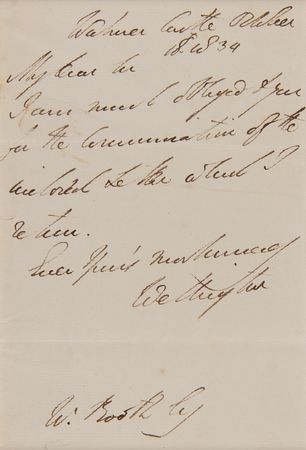 Walmer Castle October
18 1834
My dear Sir
I am much obliged to you
for the Communication of the
enclosed Letter which I
return.
Ever Yours most sincerely
Wellington
W. Booth Esq